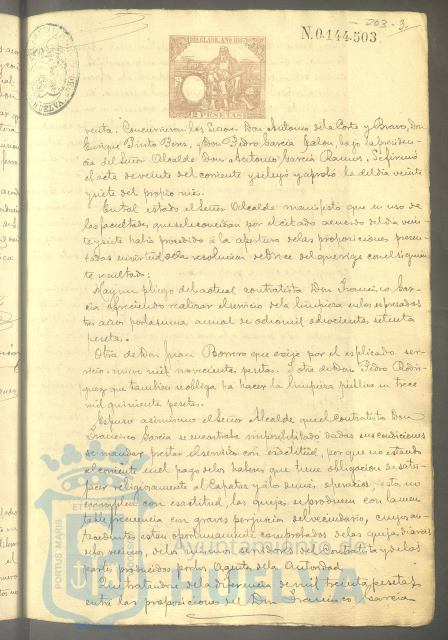 203-3.
N.0.144.503
12 PESETAS
HUELVA
venta. Concurrieron los Señores Don Antonio de la Corte y Bravo, Don
Enrique Pinto Bera, y Don Pedro García Jalon, bajo la presiden-
cia del Señor Alcalde Don Antonio García Ramos. Se firmó
el acta de veinte del corriente y se leyó y aprobó la del día veinte
y siete del propio mes.
En tal estado el Señor Alcalde manifestó que en uso de
las facultades que se le concedian por el citado acuerdo del día vein-
te y siete habia procedido á la apertura de las proposiciones presen-
tadas en virtud de la resolucion de trece del que rige con el siguien-
te resultado:
pliego del actual contratista Don Francisco Gar-
cia ofreciendo realizar el servicio de la limpieza en los espresados
tres años por la suma anual de ocho mil setenta
pesetas.
Otra de Don Juan Borrero que exije por el esplicado ser-
vicio nueve mil novecientas pesetas. Y otra de Don Pedro Rodri-
guez que tambien se obliga ha hacer la limpieza pública en trece
mil quinientas pesetas.
Espuso asimismo el Señor Alcalde que el contratista Don
Francisco García se encontraba imposibilitado dadas sus condiciones
de mandar prestar el servicio con esactitud, por que no estando
al corriente en el pago de los haberes que tiene obligacion de satis-
facer religiosamente al Capataz y á los demás operarios, estos no
cumplen con esactitud, las quejas se producen con lamen-
table frecuencia con graves perjuicios del vecindario, cuyos an-
tecedentes están plenamente comprobados de las quejas diarias
de los vecinos, de los mismos servidores del Contratista y de los
partes producidos por los Agentes de la Autoridad.
Que tratandose de la diferencia de mil treinta pesetas
entre las proposiciones del Don Francisco García
PORTUS MARIS ET
Ayuntamiento
HUELVA